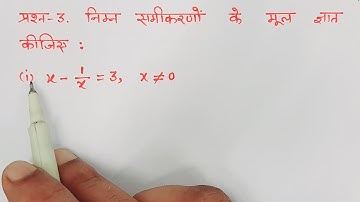 प्रश्न-3. निम्न समीकरणों के मूल ज्ञात
कीजिए :
(i) x - 1/x = 3, x ≠ 0